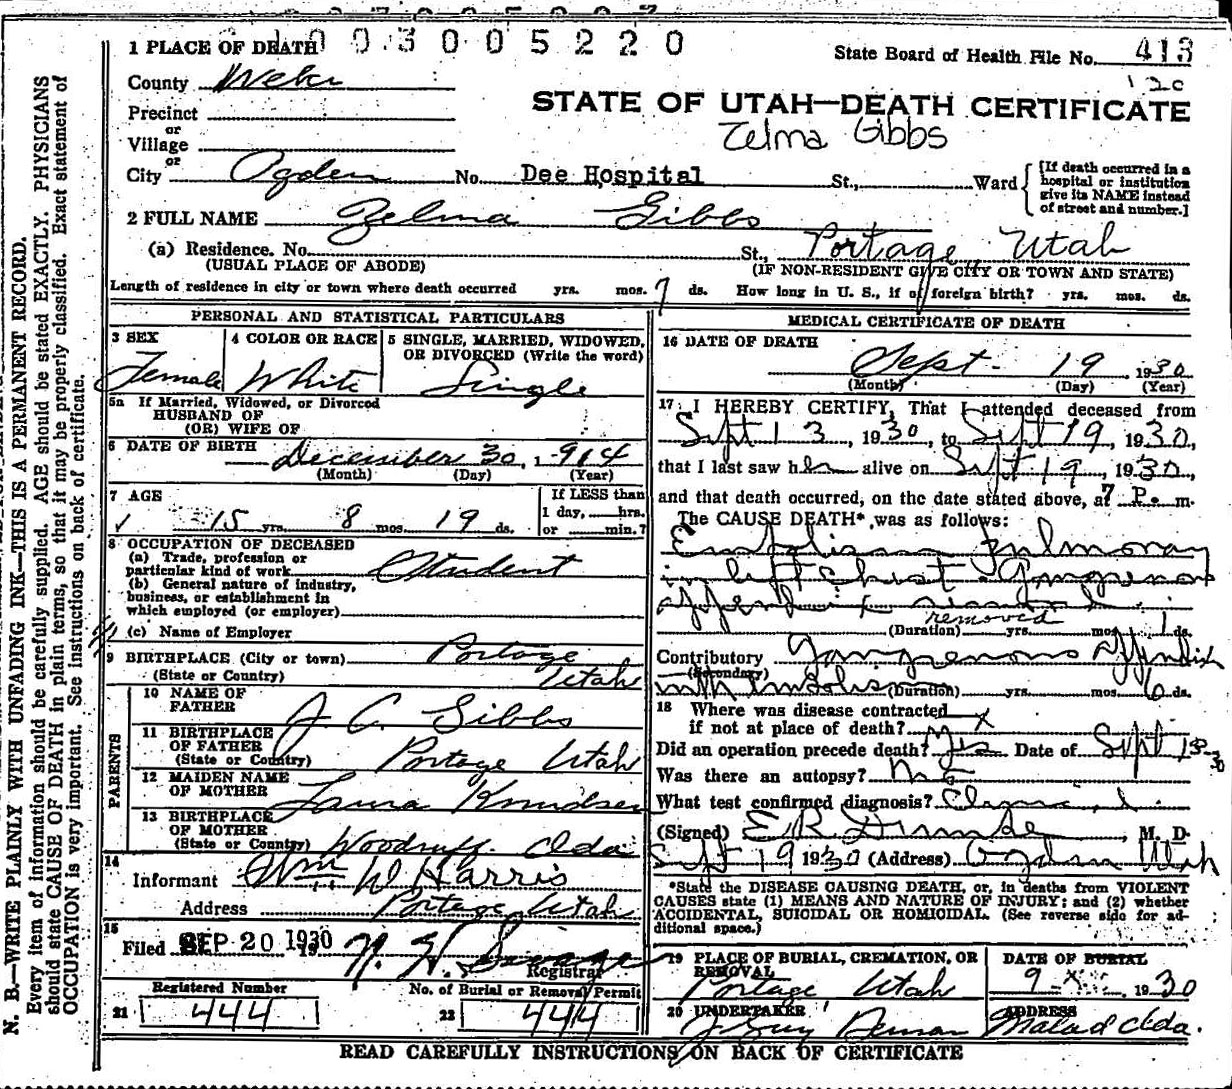 0030005220
1 PLACE OF DEATH
State Board of Health File No. 413
County Weber
120
Precinct
STATE OF UTAH—DEATH CERTIFICATE
or
Village
Zelma Gibbs
or
City Ogden No. Dee Hospital St., Ward
[If death occurred in a hospital or institution give its NAME instead of street and number.]
2 FULL NAME Zelma Gibbs
(a) Residence. No. St., Portage, Utah
(USUAL PLACE OF ABODE) (IF NON-RESIDENT GIVE CITY OR TOWN AND STATE)
Length of residence in city or town where death occurred yrs. mos. 7 ds. How long in U. S., if of foreign birth? yrs. mos. ds.
PERSONAL AND STATISTICAL PARTICULARS
3 SEX
Female
4 COLOR OR RACE
White
5 SINGLE, MARRIED, WIDOWED,
OR DIVORCED (Write the word)
Single
5a If Married, Widowed, or Divorced
HUSBAND OF
(OR) WIFE OF
6 DATE OF BIRTH December 30, 1914
(Month) (Day) (Year)
7 AGE
15 yrs. 8 mos. 19 ds.
If LESS than
1 day, hrs.
or min.?
8 OCCUPATION OF DECEASED
(a) Trade, profession or
particular kind of work Student
(b) General nature of industry,
business, or establishment in
which employed (or employer)
(c) Name of Employer
9 BIRTHPLACE (City or town) Portage
(State or Country) Utah
PARENTS
10 NAME OF
FATHER J C. Gibbs
11 BIRTHPLACE
OF FATHER
(State or Country) Portage Utah
12 MAIDEN NAME
OF MOTHER Laura Knudsen
13 BIRTHPLACE
OF MOTHER
(State or Country) Woodruff Ida
14
Informant Wm W Harris
Address Portage, Utah
15
Filed SEP 20 1930
Registrar
Registered Number
21 444
No. of Burial or Removal Permit
22 444
MEDICAL CERTIFICATE OF DEATH
16 DATE OF DEATH
Sept. 19 1930
(Month) (Day) (Year)
17 I HEREBY CERTIFY, That I attended deceased from
Sept 13, 1930, to Sept 19, 1930,
that I last saw her alive on Sept 19, 1930
and that death occurred, on the date stated above, at 7 P. m.
The CAUSE DEATH* was as follows:
Embolism Pulmonary
in left chest Gangrenous
appendix
removed
(Duration) yrs. mos. 1 ds.
Contributory Gangrenous Appendix
(Secondary)
with embolism (Duration) yrs. mos. 6 ds.
18 Where was disease contracted
if not at place of death? x
Did an operation precede death? Yes Date of Sept 13-30
Was there an autopsy? No
What test confirmed diagnosis?
(Signed) E R M. D.
Sept 19 1930 (Address) Ogden Utah
*State the DISEASE CAUSING DEATH, or, in deaths from VIOLENT
CAUSES state (1) MEANS AND NATURE OF INJURY; and (2) whether
ACCIDENTAL, SUICIDAL OR HOMICIDAL. (See reverse side for ad-
ditional space.)
19 PLACE OF BURIAL, CREMATION, OR
REMOVAL
Portage, Utah
DATE OF BURIAL
9 1930
20 UNDERTAKER
J Guy
ADDRESS
Malad Ida.
READ CAREFULLY INSTRUCTIONS ON BACK OF CERTIFICATE
N. B.—WRITE PLAINLY WITH UNFADING INK—THIS IS A PERMANENT RECORD.
Every item of information should be carefully supplied. AGE should be stated EXACTLY. PHYSICIANS
should state CAUSE OF DEATH in plain terms, so that it may be properly classified. Exact statement of
OCCUPATION is very important. See instructions on back of certificate.